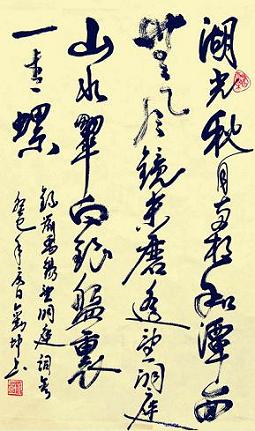 湖光秋月两相和潭面
無风镜未磨遥望洞庭
山水翠白银盤裏
一青螺
刘禹锡望洞庭
癸巳年日坤书